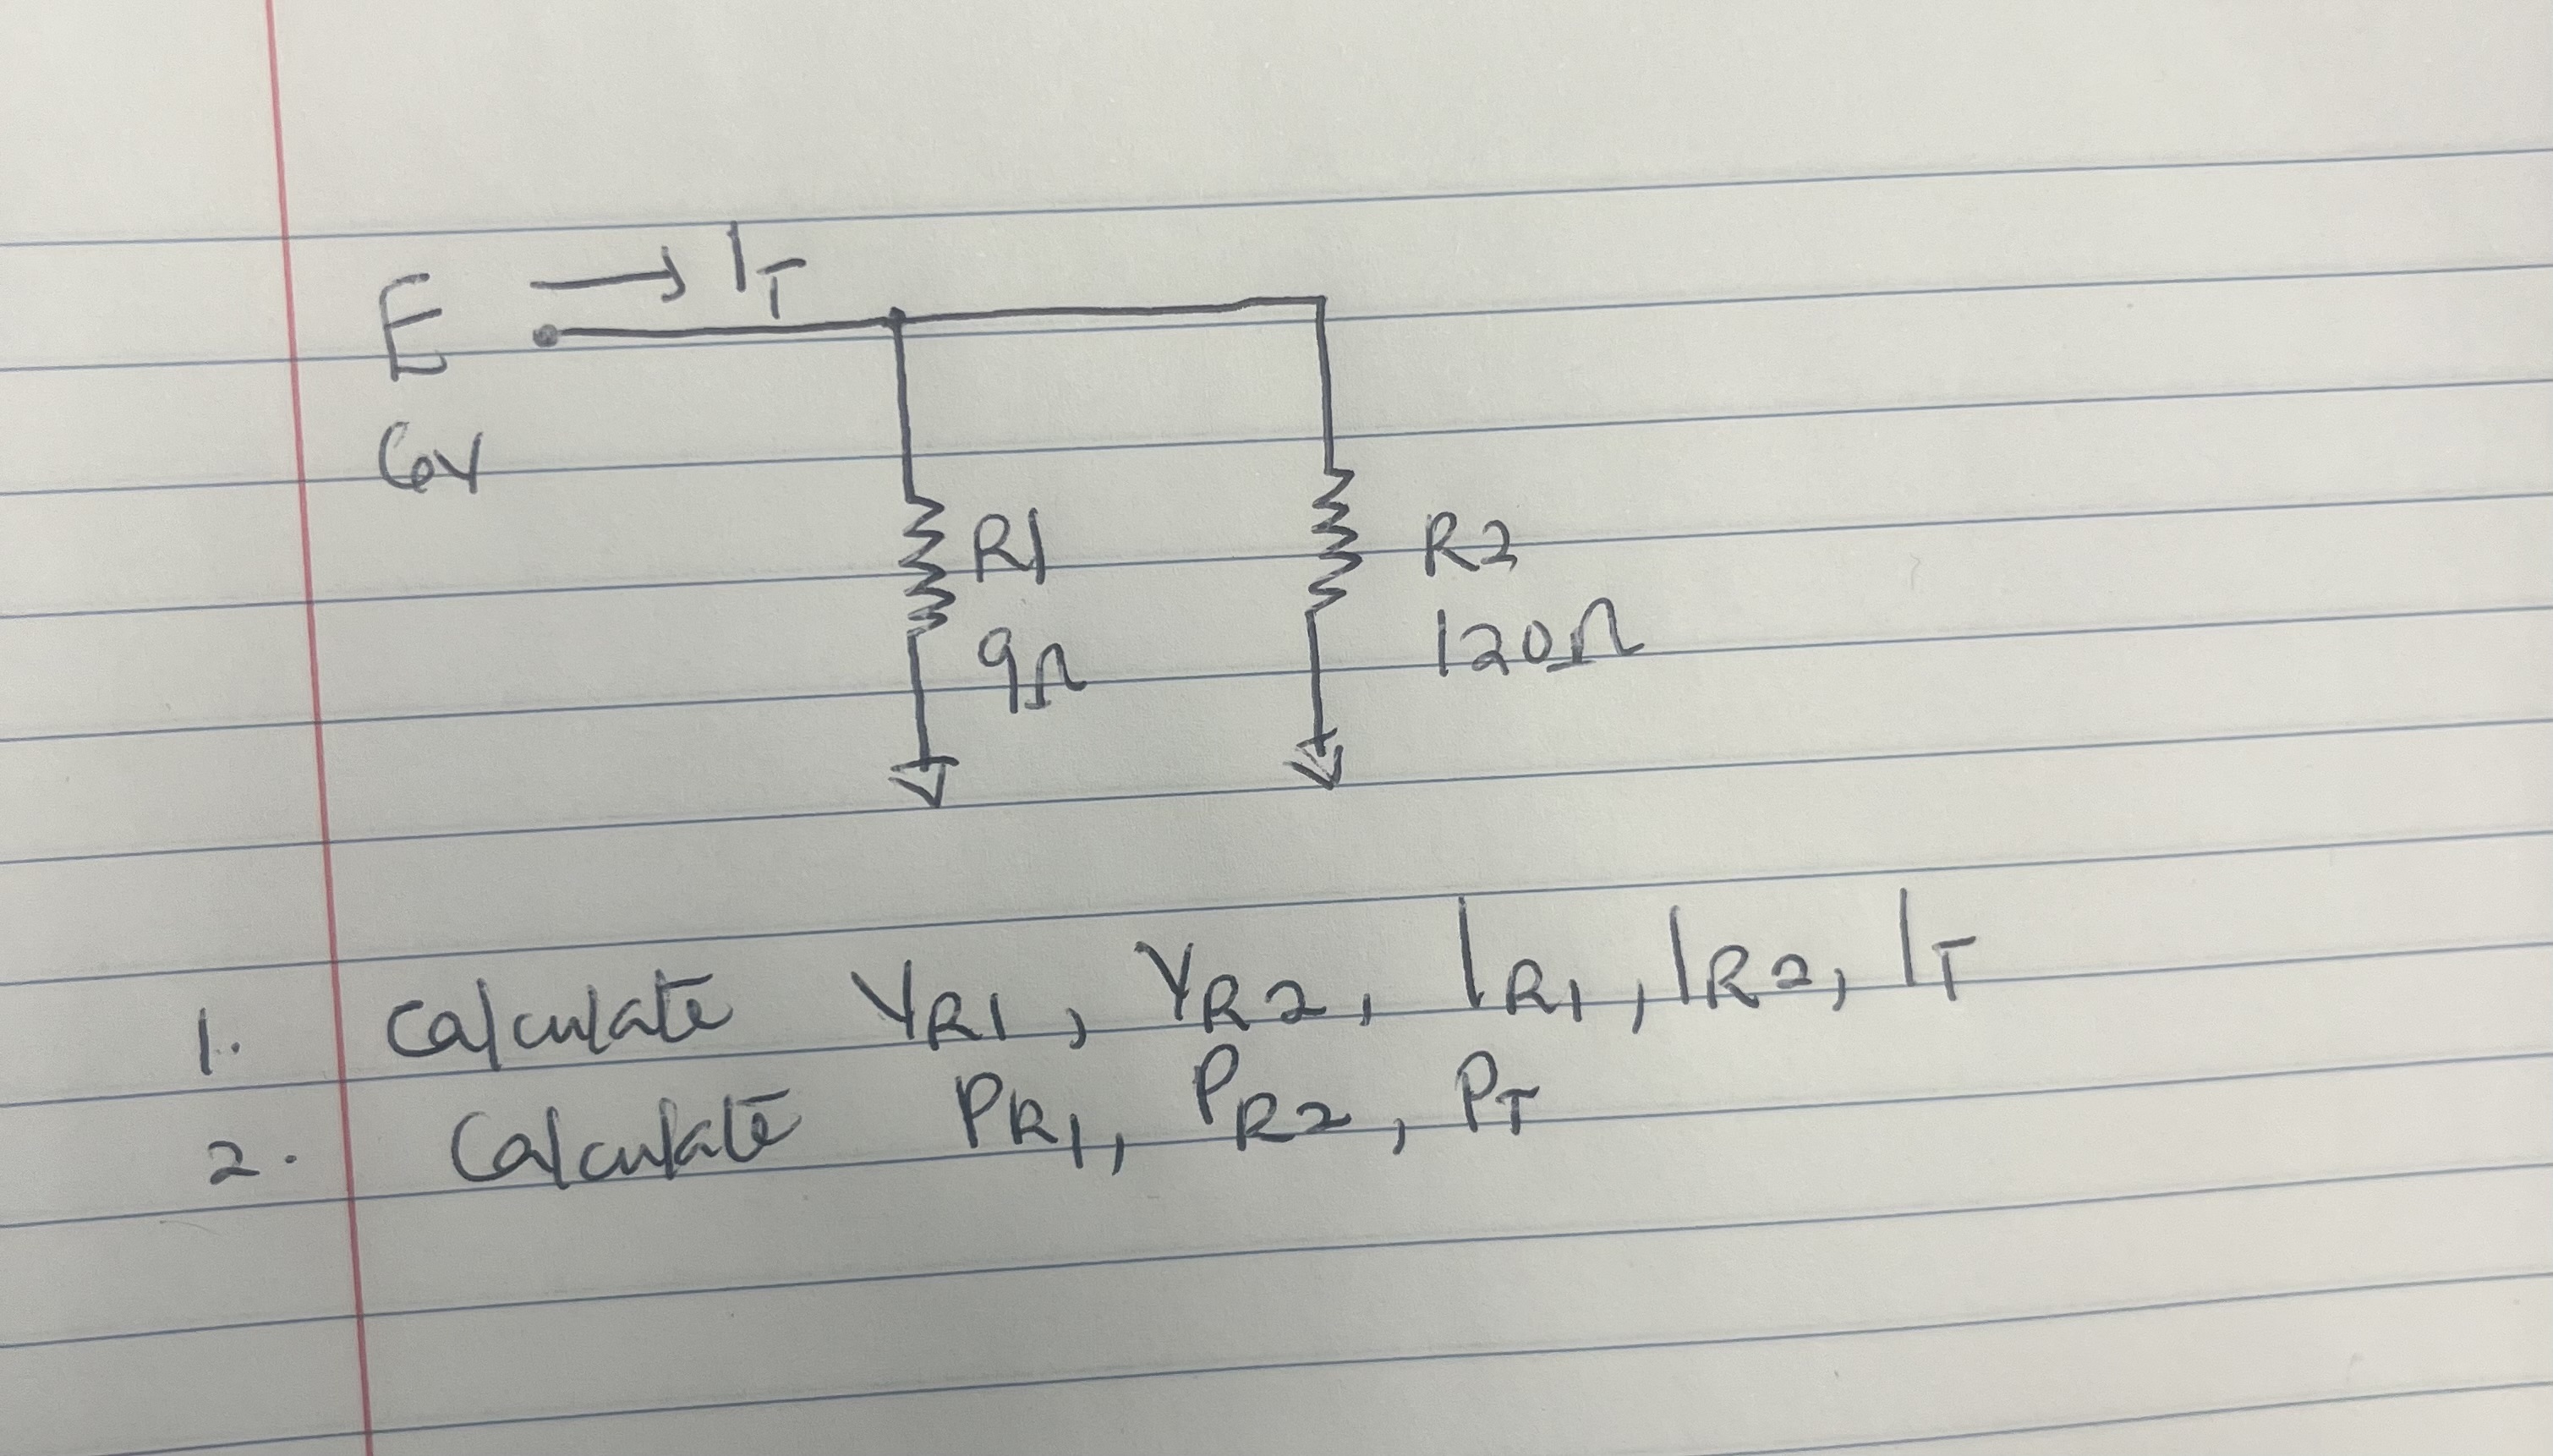 E → I_T
6V
R1
9Ω
R2
120Ω
1. Calculate V_R1, V_R2, I_R1, I_R2, I_T
2. Calculate P_R1, P_R2, P_T